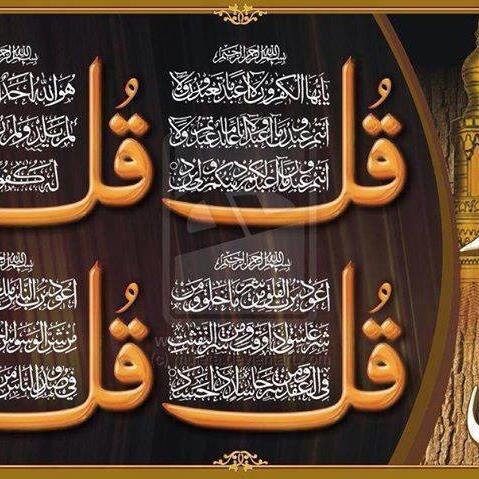 بسم الله الرحمن الرحيم
قل
يأيها الكفرون لا أعبد ما تعبدون ولا
أنتم عبدون ما أعبد ولا أنا عابد ما عبدتم ولا
أنتم عبدون ما أعبد لكم دينكم ولي دين
بسم الله الرحمن الرحيم
قل
هو الله أحد
لم يلد ولم
له كفوا
بسم الله الرحمن الرحيم
قل
أعوذ برب الفلق من شر ما خلق ومن
شر غاسق إذا وقب ومن شر النفثت
في العقد ومن شر حاسد إذا حسد
بسم الله الرحمن الرحيم
قل
أعوذ برب الناس
من شر الوسواس
في صدور الناس من